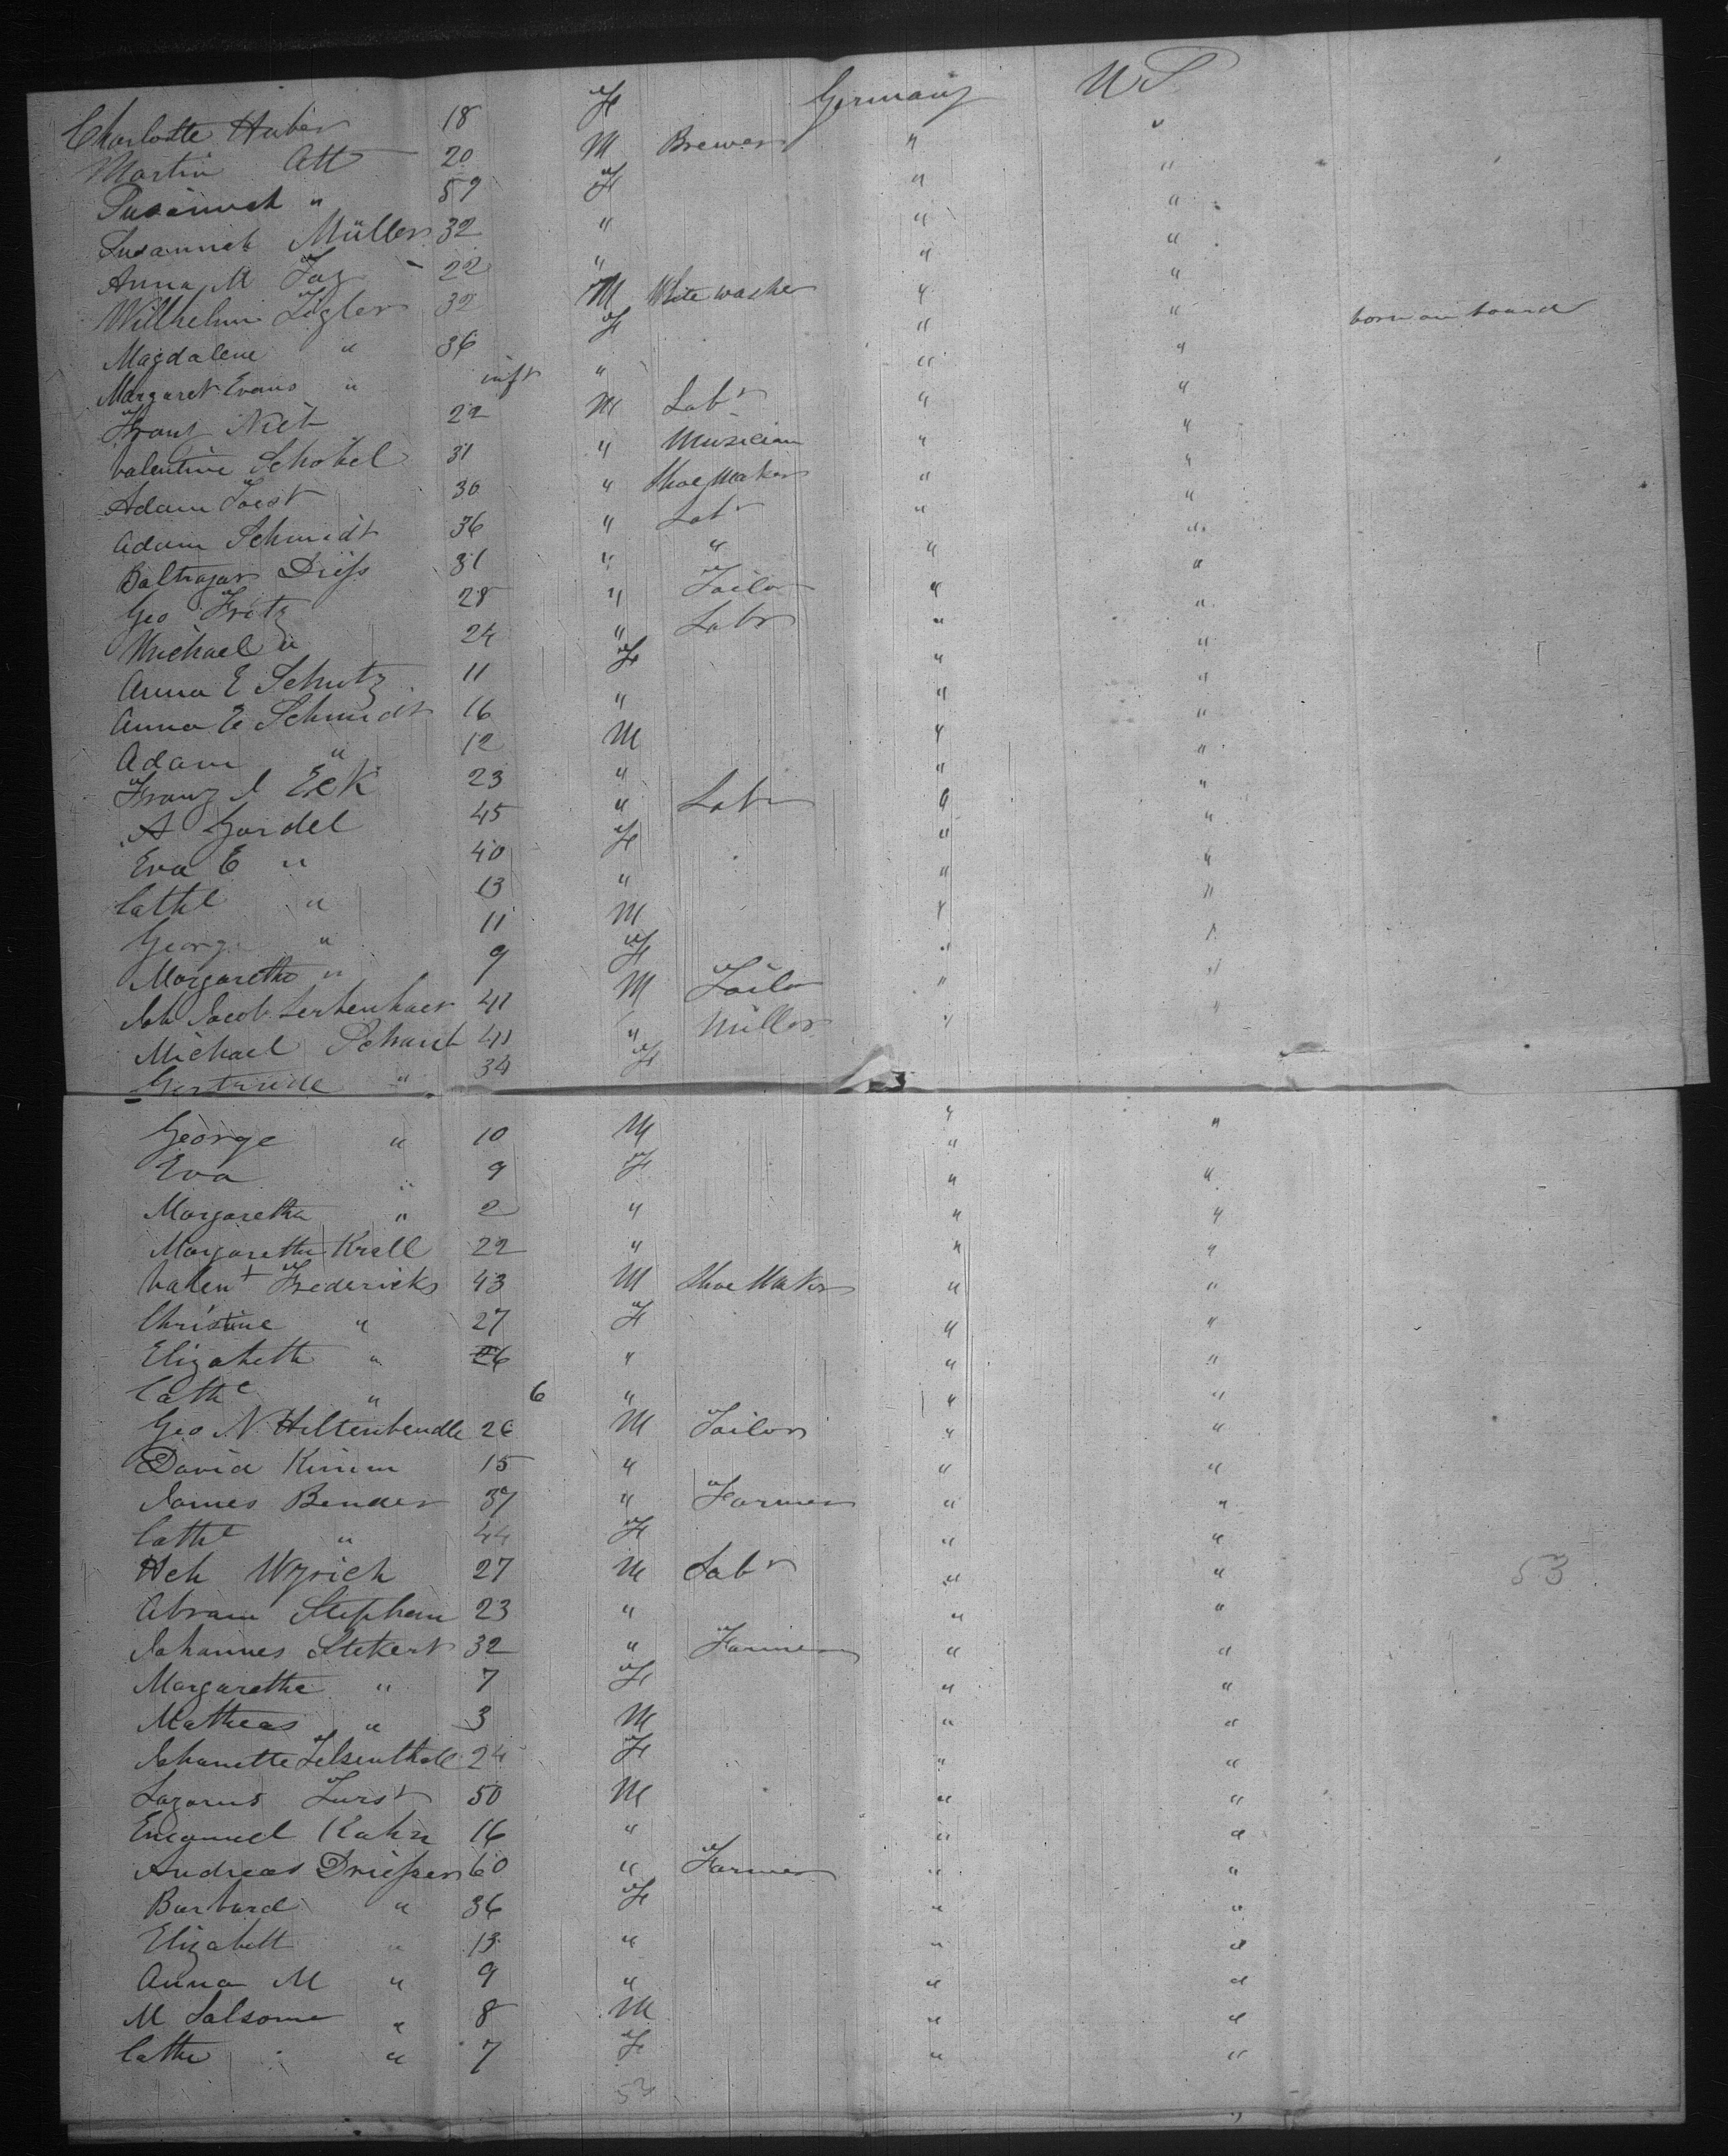 Charlotte Huber 18 F Germany U S
Martin Ott 20 M Brewer " "
Susannah " 59 F " "
Susannah Müller 32 " " "
Anna M 22 " " "
Wilhelm Zigler 32 M White washer " "
Magdalene " 36 F " " born on board
Margaret Evans " inft " " "
Franz 22 M Labr " "
Valentine Schobel 31 " Musician " "
Adam 30 " Shoe Maker " "
Adam Schmidt 36 " Labr " "
Baltrazar 31 " " " "
Geo Fritz 28 " Tailor " "
Michael " 24 " Labr " "
Anna E Schutz 11 F " "
Anna E Schmidt 16 " " "
Adam " 12 M " "
Franz J Eck 23 " " "
A Gardel 45 " Labr " "
Eva E " 40 F " "
Cathe " 13 " " "
George " 11 M " "
Margaretha " 9 F " "
Joh Jacob 41 M Tailor " "
Michael Schaub 41 " Miller " "
Gertrude " 34 F
George " 10 M " "
Eva " 9 F " "
Margaretha " 2 " " "
Margaretha Krell 22 " " "
Valent Fredericks 43 M Shoe Maker " "
Christine " 27 F " "
Elizabeth " 26 " " "
Cathe " 6 " " "
Geo N Hiltenbendle 26 M Tailor " "
David Kimm 15 " " "
James Bender 37 " Farmer " "
Cathe " 44 F " "
Hch Wyrich 27 M Labr " "
Abram Stephan 23 " " "
Johannes Stekert 32 " Farmer " "
Margaretha " 7 F " "
Matheas " 3 M " "
Johanette Felsenthall 24 F " "
Lazarus Furst 50 M " "
Emanuel Kahn 16 " " "
Andreas Driesser 60 " Farmer " "
Barbara " 36 F " "
Elizabeth " 13 " " "
Anna M " 9 " " "
M Salsome " 8 M " "
Cathe " 7 F " "
53
53